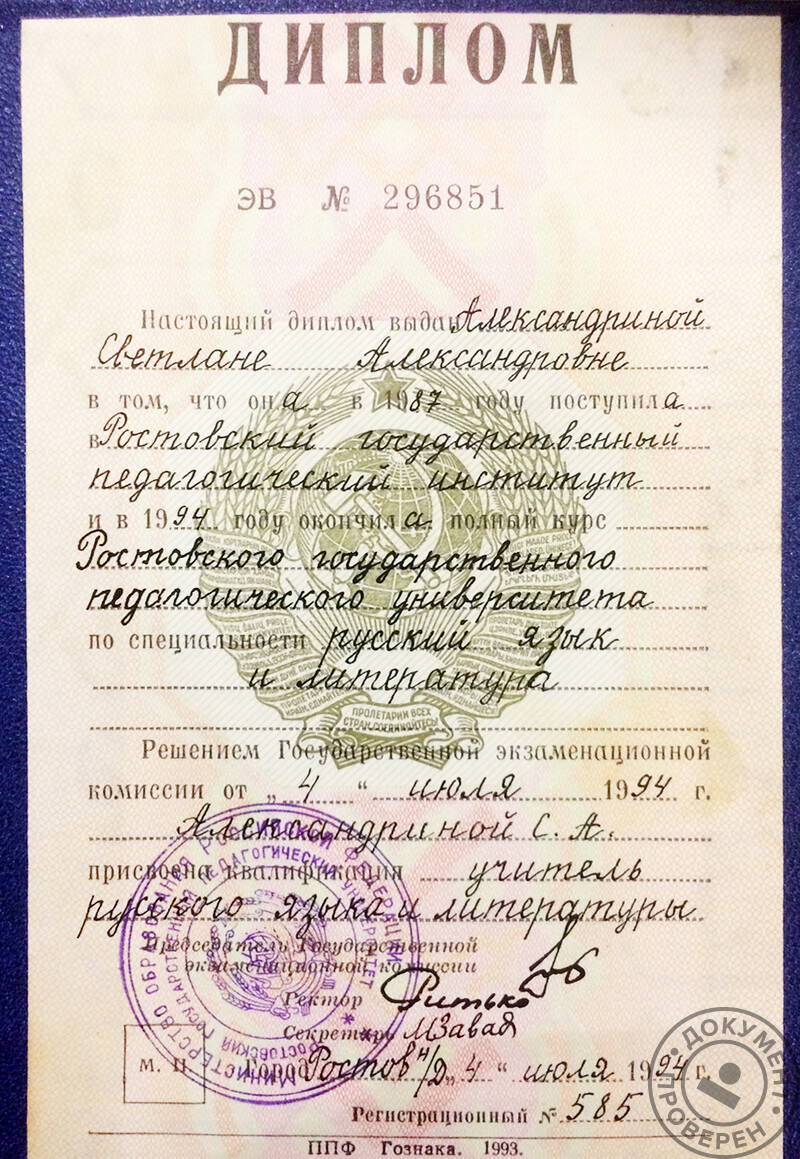 ДИПЛОМ
ЭВ № 296851
Настоящий диплом выдан Александриной
Светлане Александровне
в том, что она в 1987 году поступила
в Ростовский государственный
педагогический институт
и в 1994 году окончила полный курс
Ростовского государственного
педагогического университета
по специальности русский язык
и литература
ПРОЛЕТАРИИ ВСЕХ
СТРАН, СОЕДИНЯЙТЕСЬ!
Решением Государственной экзаменационной
комиссии от „4“ июля 1994 г.
Александриной С. А.
присвоена квалификация учитель
русского языка и литературы
Председатель Государственной
экзаменационной комиссии
Ректор
Секретарь
М. П.
Город Ростов н/Д „4“ июля 1994 г.
Регистрационный № 585
ППФ Гознака. 1993.
МИНИСТЕРСТВО ОБРАЗОВАНИЯ РОССИЙСКОЙ ФЕДЕРАЦИИ
РОСТОВСКИЙ ГОСУДАРСТВЕННЫЙ ПЕДАГОГИЧЕСКИЙ УНИВЕРСИТЕТ
ДОКУМЕНТ
ПРОВЕРЕН